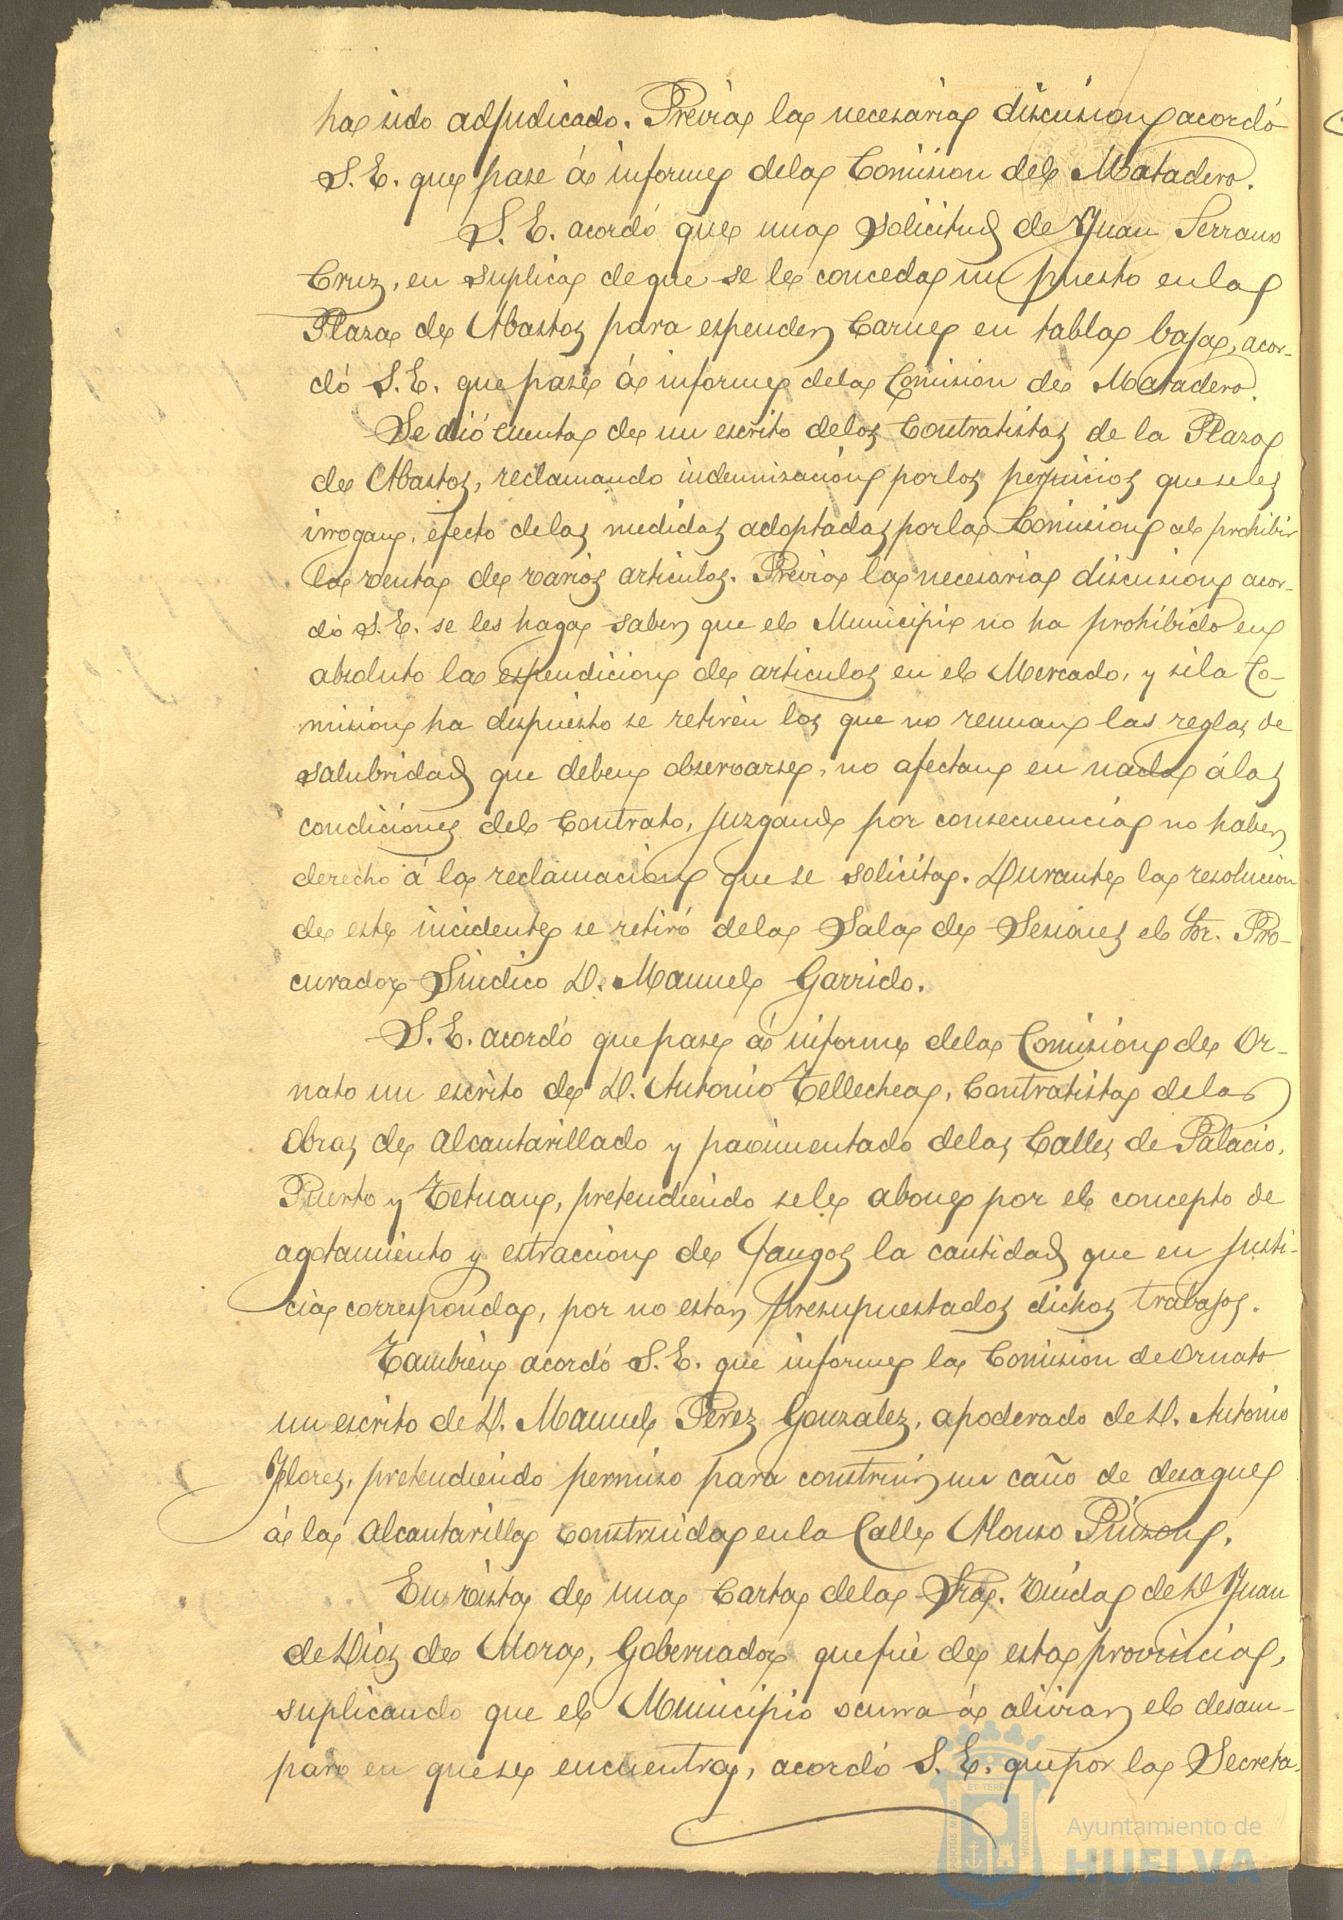 ha sido adjudicado. Previa la necesaria discusion acordó
S. E. que pase á informe dela Comision del Matadero.
S. E. acordó que una solicitud de Juan Serrano
Cruz, en suplica de que se le conceda un puesto en la
Plaza de Abastos para espender Carne en tabla baja, acor-
dó S. E. que pase á informe dela Comision de Matadero.
Se dió cuenta de un escrito delos Contratistas de la Plaza
de Abastos, reclamando indemnizacion porlos perjuicios que seles
irrogan, efecto delas medidas adoptadas porla Comision al prohibir
la venta de varios articulos. Previa la necesaria discusion acor-
dó S. E. se les haga saber que el Municipio no ha prohibido en
absoluto la espendicion de articulos en el Mercado, y sila Co-
mision ha dispuesto se retiren los que no reunan las reglas de
salubridad que deben observarse, no afectan en nada álas
condiciones del Contrato, juzgando por consecuencia no haber
derecho á la reclamacion que se solicita. Durante la resolucion
de este incidente se retiró dela Sala de Sesiones el Sor. Pro-
curador Sindico D. Manuel Garrido.
S. E. acordó que pase á informe dela Comision de Or-
nato un escrito de D. Antonio Tellechea, Contratista delas
obras de alcantarillado y pavimentado delas Calles de Palacio,
Puerto y Tetuan, pretendiendo sele abone por el concepto de
agotamiento y estraccion de fangos la cantidad que en justi-
cia corresponda, por no estar presupuestados dichos trabajos.
Tambien acordó S. E. que informe la Comision de ornato
un escrito de D. Manuel Perez Gonzalez, apoderado de D. Antonio
Flores, pretendiendo permiso para construir un caño de desague
á la Alcantarilla construida en la Calle Alonso Pinzon.
En vista de una Carta dela Sra. Viuda de D Juan
de Dios de Mora, Gobernador que fué de esta provincia,
suplicando que el Municipio ocurra á aliviar el desam-
paro en que se encuentra, acordó S. E. que por la Secreta-
Ayuntamiento de
HUELVA